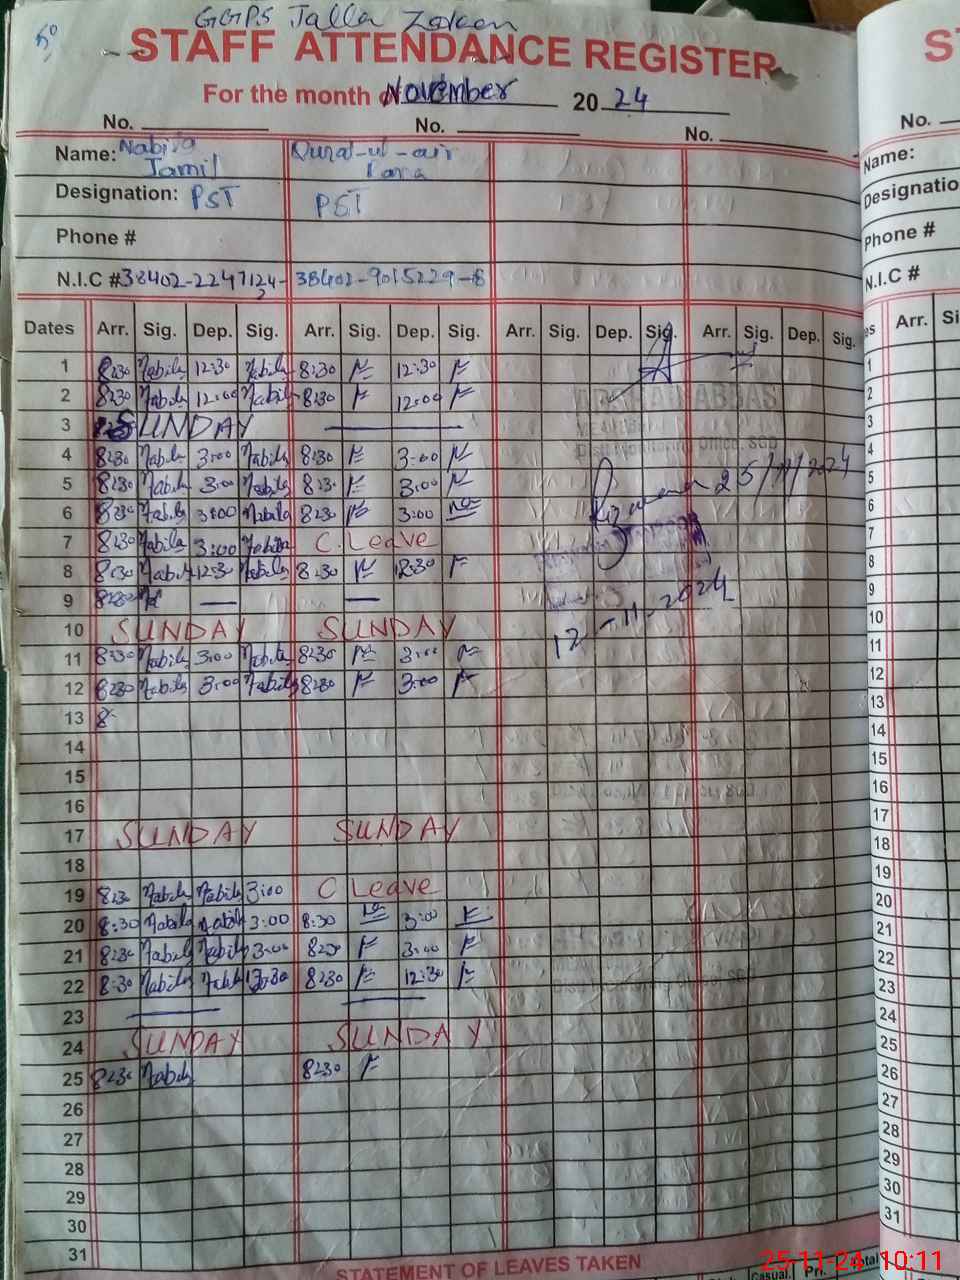 50
GGPS Jalla
STAFF ATTENDANCE REGISTER
For the month of November 2024
No. No. No.
Name: Nabila Jamil Qurat-ul-ain
Designation: PST PST
Phone #
N.I.C # 38402-2247124- 38402-9015229-8
Dates Arr. Sig. Dep. Sig. Arr. Sig. Dep. Sig. Arr. Sig. Dep. Sig. Arr. Sig. Dep. Sig.
1 8:30 Nabila 12:30 Nabila 8:30 12:30
2 8:30 Nabila 12:00 Nabila 8:30 12:00
ABBAS
3 SUNDAY
Distt Monitoring Office, SGD
4 8:30 Nabila 3:00 Nabila 8:30 3:00
5 8:30 Nabila 3:00 Nabila 8:30 3:00
25/11/2024
6 8:30 Nabila 3:00 Nabila 8:30 3:00
7 8:30 Nabila 3:00 Nabila C. Leave
8 8:30 Nabila 12:30 Nabila 8:30 12:30
9 8:30
10 SUNDAY SUNDAY
12-11-2024
11 8:30 Nabila 3:00 Nabila 8:30 3:00
12 8:30 Nabila 3:00 Nabila 8:30 3:00
13 8
14
15
16
17 SUNDAY SUNDAY
18
19 8:30 Nabila Nabila 3:00 C Leave
20 8:30 Nabila Nabila 3:00 8:30 3:00
21 8:30 Nabila Nabila 3:00 8:30 3:00
22 8:30 Nabila Nabila 12:30 8:30 12:30
23
24 SUNDAY SUNDAY
25 8:30 Nabila 8:30
26
27
28
29
30
31
STATEMENT OF LEAVES TAKEN
Casual.
Name:
No.
Designatio
Phone #
N.I.C #
Arr.
1
2
3
4
5
6
7
8
9
10
11
12
13
14
15
16
17
18
19
20
21
22
23
24
25
26
27
28
29
30
31
25-11-24 10:11